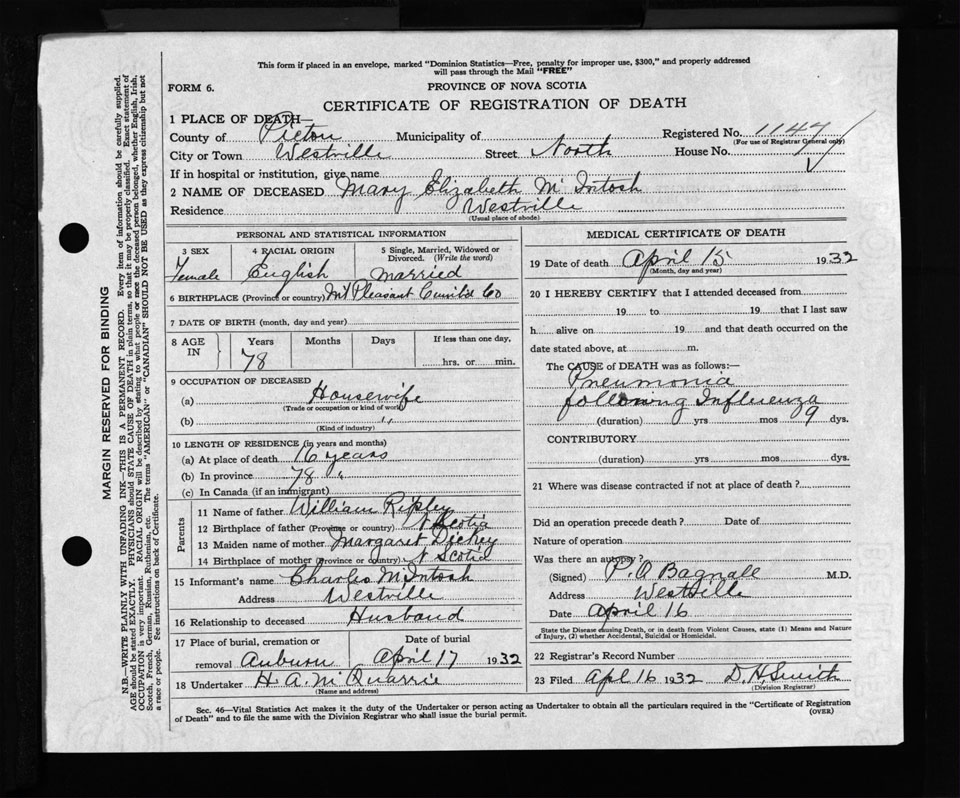 This form if placed in an envelope, marked "Dominion Statistics—Free, penalty for improper use, $300," and properly addressed
will pass through the Mail "FREE"
FORM 6.
PROVINCE OF NOVA SCOTIA
CERTIFICATE OF REGISTRATION OF DEATH
1 PLACE OF DEATH—
County of Pictou Municipality of Registered No. 1147
(For use of Registrar General only)
City or Town Westville Street North House No.
If in hospital or institution, give name
2 NAME OF DECEASED Mary Elizabeth McIntosh
Residence Westville
(Usual place of abode)
PERSONAL AND STATISTICAL INFORMATION
3 SEX 4 RACIAL ORIGIN 5 Single, Married, Widowed or
Divorced. (Write the word)
Female English Married
6 BIRTHPLACE (Province or country) Mt Pleasant Cumb'd Co
7 DATE OF BIRTH (month, day and year)
8 AGE IN Years Months Days If less than one day,
78 hrs. or min.
9 OCCUPATION OF DECEASED
(a) Housewife
(Trade or occupation or kind of work)
(b) " "
(Kind of industry)
10 LENGTH OF RESIDENCE (in years and months)
(a) At place of death 16 years
(b) In province 78 "
(c) In Canada (if an immigrant)
Parents
11 Name of father William Ripley
12 Birthplace of father (Province or country) N Scotia
13 Maiden name of mother Margaret Dickey
14 Birthplace of mother (Province or country) N Scotia
15 Informant's name Charles McIntosh
Address Westville
16 Relationship to deceased Husband
17 Place of burial, cremation or Date of burial
removal Auburn April 17 1932
18 Undertaker H. A. McQuarrie
(Name and address)
MEDICAL CERTIFICATE OF DEATH
19 Date of death April 15 1932
(Month, day and year)
20 I HEREBY CERTIFY that I attended deceased from
19 to 19 that I last saw
h alive on 19 and that death occurred on the
date stated above, at m.
The CAUSE of DEATH was as follows:
Pneumonia
following Influenza
(duration) yrs mos 9 dys.
CONTRIBUTORY
(duration) yrs mos dys.
21 Where was disease contracted if not at place of death?
Did an operation precede death? Date of
Nature of operation
Was there an autopsy?
(Signed) P. O Bagnall M.D.
Address Westville
Date April 16
State the Disease causing Death, or in death from Violent Causes, state (1) Means and Nature
of Injury, (2) whether Accidental, Suicidal or Homicidal.
22 Registrar's Record Number
23 Filed Apl 16 1932 D. H. Smith
(Division Registrar)
Sec. 46—Vital Statistics Act makes it the duty of the Undertaker or person acting as Undertaker to obtain all the particulars required in the "Certificate of Registration
of Death" and to file the same with the Division Registrar who shall issue the burial permit.
(OVER)
MARGIN RESERVED FOR BINDING
N.B.—WRITE PLAINLY WITH UNFADING INK—THIS IS A PERMANENT RECORD. Every item of information should be carefully supplied.
AGE should be stated EXACTLY. PHYSICIANS should STATE CAUSE OF DEATH in plain terms, so that it may be properly classified. Exact statement of
OCCUPATION is very important. RACIAL ORIGIN will be described by stating to what people or race the deceased person belonged, whether English, Irish,
Scotch, French, German, Russian, Ruthenian, etc. The terms "AMERICAN" or "CANADIAN" SHOULD NOT BE USED as they express citizenship but not
a race or people. See instructions on back of Certificate.